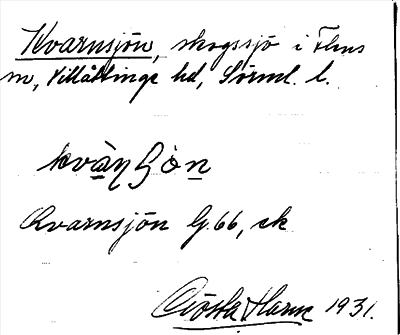 Kvarnsjön, skogssjö i Flens
sn, Villåttinge hd, Sörml. l.
Kvarnsjön G.66, ek
Gösta Harn 1931.